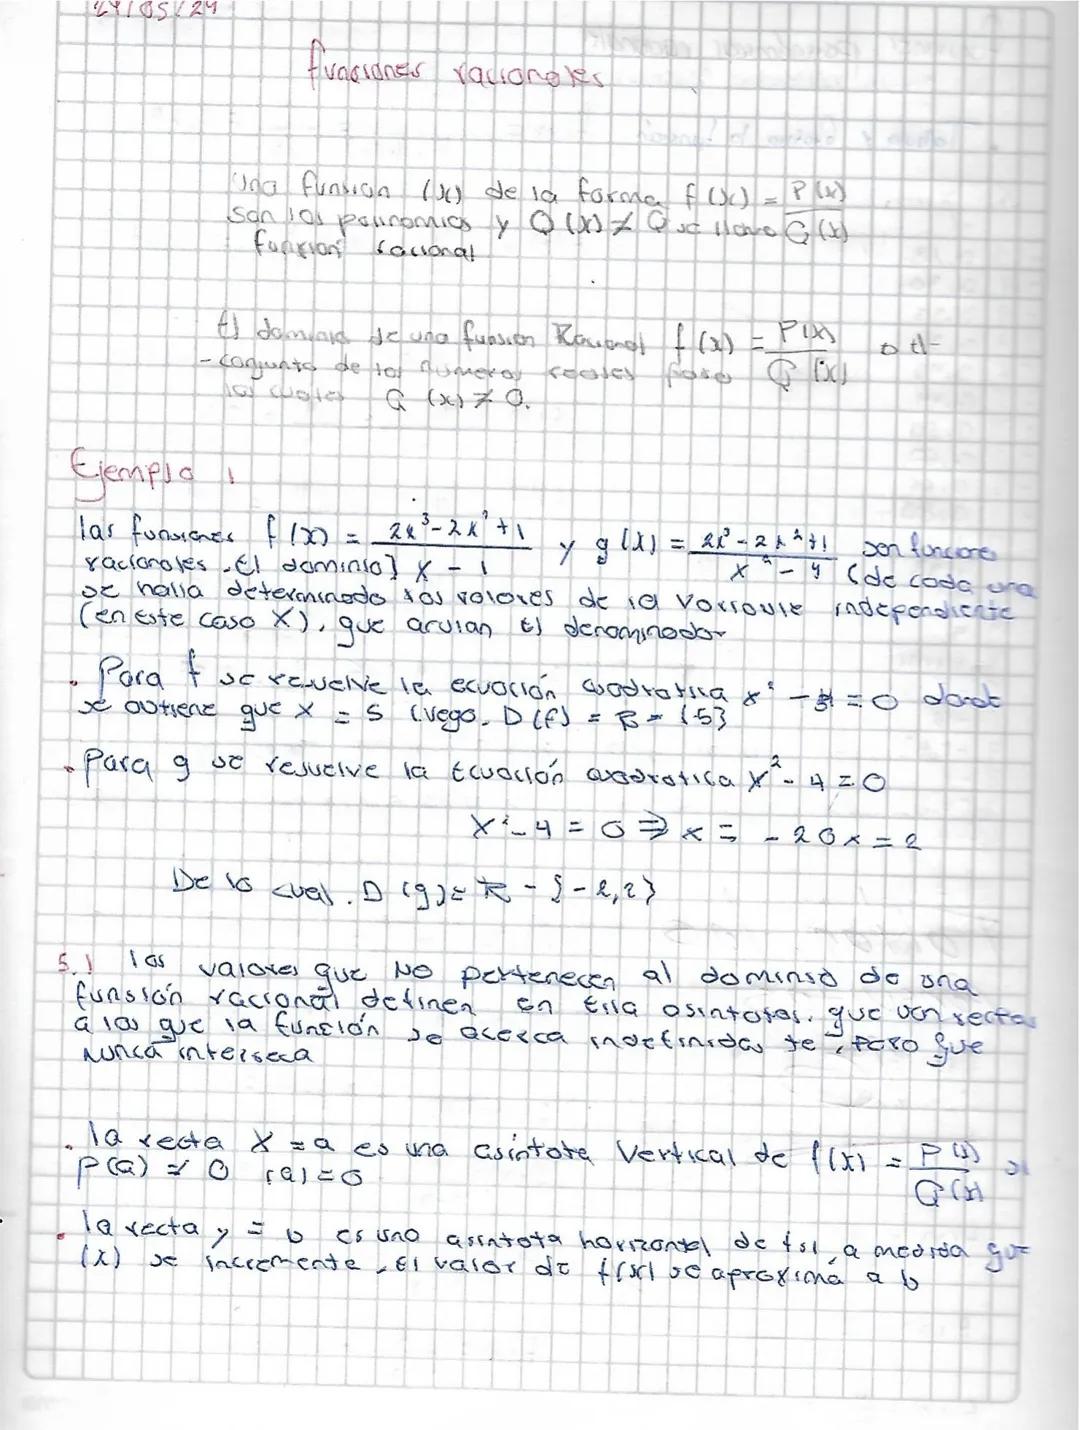 24/05/24
funciones racionales
Una funsion (x) de la forma f(x) = P(x)/Q(x)
son los polinomios y Q(x) ≠ 0 se llama
funsion racional
El dominio de una funsion Racional f(x) = P(x)/Q(x) o el
-conjunto de los numeros reales para
los cuales Q(x) ≠ 0.
Ejemplo 1
las funsiones f(x) = 2x³-2x²+1/x-1 y g(x) = 2x³-2x²+1/x²-4 son funcione
racionales. El dominio] (de cada una
se halla determinado los valores de la variable independiente
(en este caso X), que anulan El denominador
• Para f se resuelve la ecuación cuadratica x² - = 0 donde
se obtiene que x = 5 luego. D(f) = R - {5}
• Para g se resuelve la Ecuación cuadratica x² - 4 = 0
x²-4 = 0 ⇒ x = -2 o x = 2
De lo cual. D(g) = R - {-2,2}
5.1 los valores que NO pertenecen al dominio de una
funsión racional definen en Ella asintotas. que son rectas
a las que la función se acerca indefinidas te, pero que
Nunca interseca
• la recta X = a es una asíntota Vertical de f(x) = P(x)/Q(x) si
P(a) ≠ 0 (a) = 0
• la recta y = b es una asintota horizontal de f si, a medida que
(x) se incremente, El valor de f(x) se aproxima a b